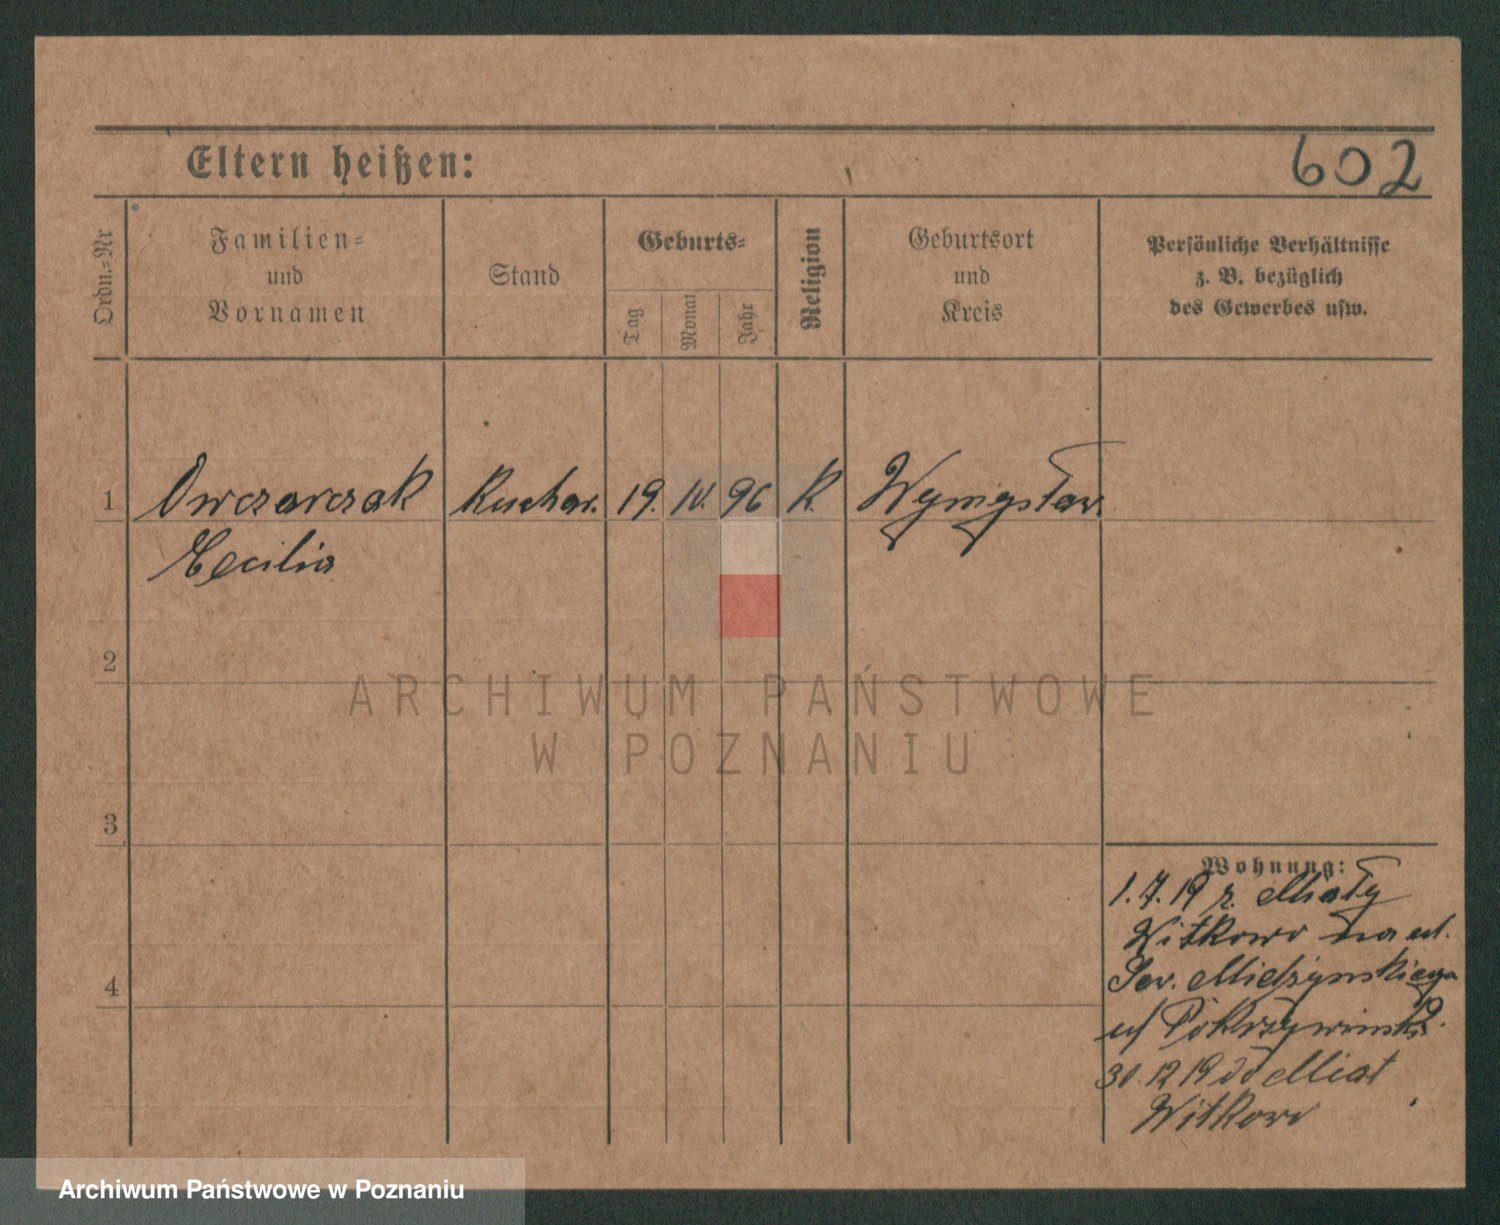 Eltern heißen:
602
Ordn.-Nr
Familien-
und
Vornamen
Stand
Geburts-
Tag
Monat
Jahr
Religion
Geburtsort
und
Kreis
Persönliche Verhältnisse
z. B. bezüglich
des Gewerbes usw.
1
Owczarczak
Kuchar.
19.
IV.
96
K.
Wymysław
Cecilia
2
3
4
Wohnung:
1.7.19 z
Witkowo na ul.
ul
30.12.19 do Miat
Witkowo
ARCHIWUM PAŃSTWOWE
W POZNANIU
Archiwum Państwowe w Poznaniu